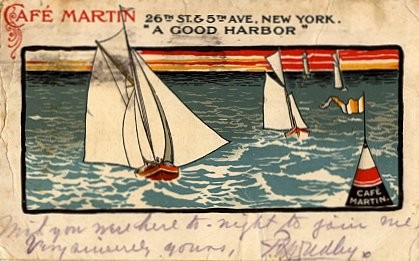 CAFÉ MARTIN
26TH ST. & 5TH AVE, NEW YORK.
"A GOOD HARBOR"
CAFÉ
MARTIN.
Wish you were here to-night to join me,
Very sincerely yours,